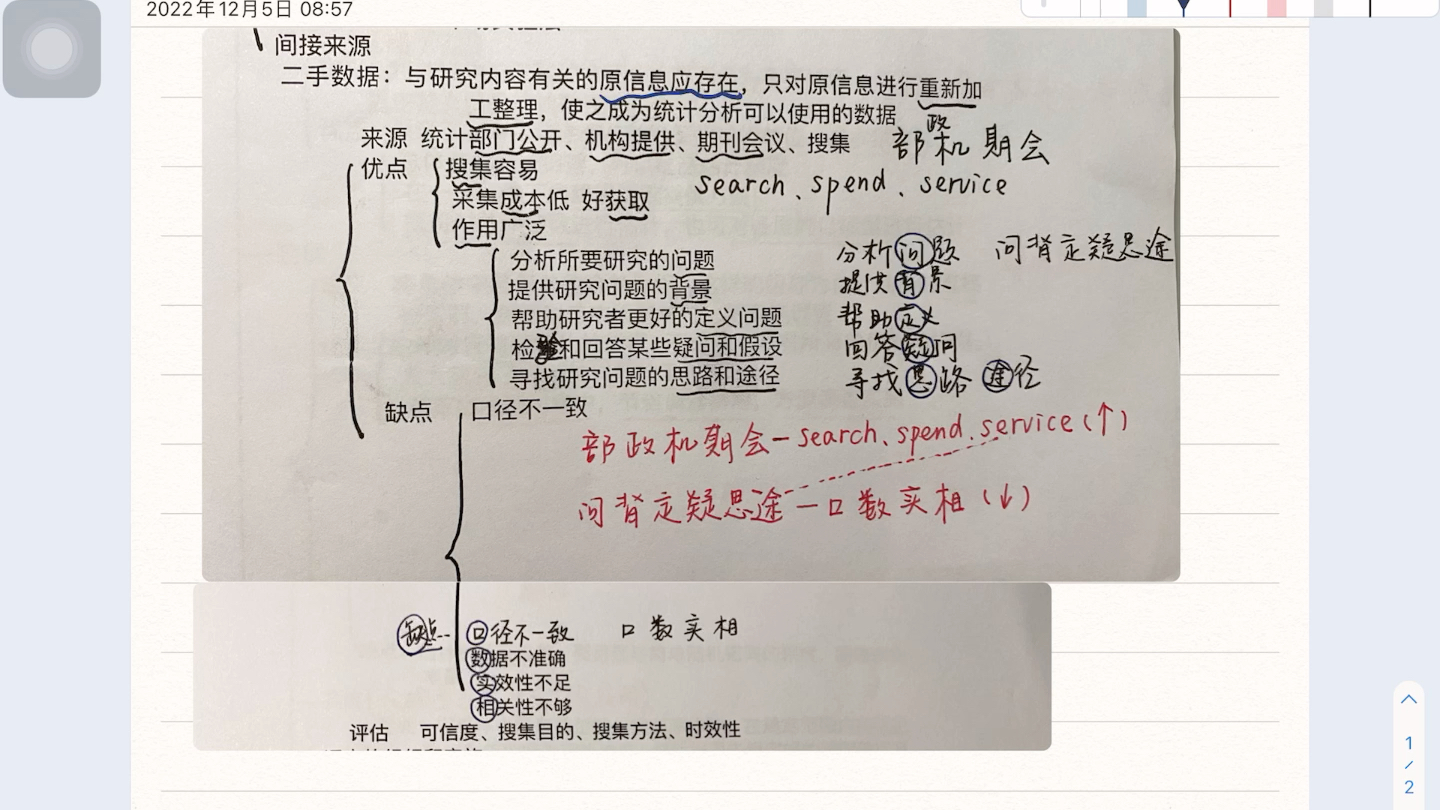 2022年12月5日 08:57
间接来源
二手数据：与研究内容有关的原信息应存在，只对原信息进行重新加
工整理，使之成为统计分析可以使用的数据
政
来源 统计部门公开、机构提供、期刊会议、搜集 部机期会
优点 搜集容易
search、spend、service
采集成本低 好获取
作用广泛
分析所要研究的问题 分析问题 问背定疑思途
提供研究问题的背景 提供背景
帮助研究者更好的定义问题 帮助定义
检验和回答某些疑问和假设 回答疑问
寻找研究问题的思路和途径 寻找思路 途径
缺点 口径不一致
部政机期会-search、spend、service(↑)
问背定疑思途-口数实相(↓)
缺点 口径不一致 口数实相
数据不准确
实效性不足
相关性不够
评估 可信度、搜集目的、搜集方法、时效性
1
/
2